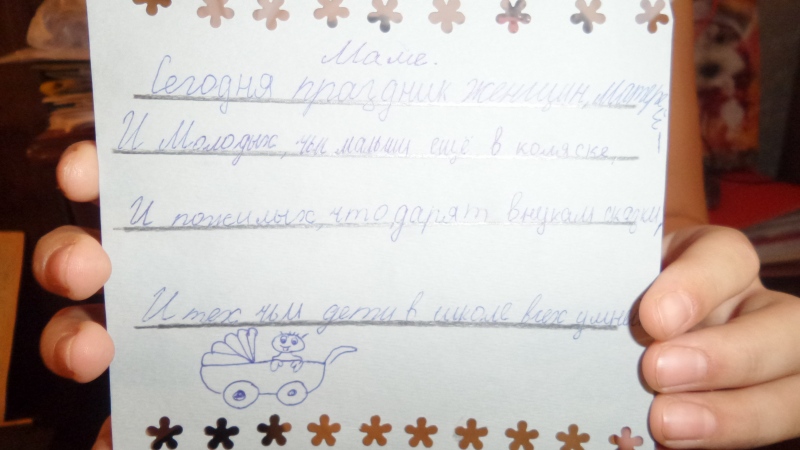 Маме.
Сегодня праздник женщин, матерей -
И молодых, чьи малыши ещё в коляске,
И пожилых, что дарят внукам сказки,
И тех чьи дети в школе всех умней